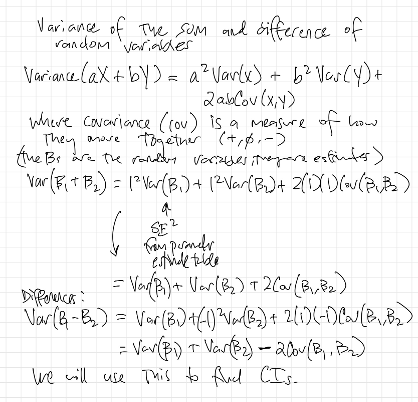 Variance of the sum and difference of
random variables
Variance(aX + bY) = a² Var(x) + b² Var(Y) +
2abCov(x,y)
where covariance (cov) is a measure of how
they move together (+, ø, -)
(the Bs are the random variables, they are estimates)
Var(B₁ + B₂) = 1² Var(B₁) + 1² Var(B₂) + 2(1)(1)Cov(B₁,B₂)
SE²
from parameter
estimate table
= Var(B₁) + Var(B₂) + 2Cov(B₁,B₂)
Differences:
Var(B₁-B₂) = Var(B₁) + (-1)² Var(B₂) + 2(1)(-1)Cov(B₁,B₂)
= Var(B₁) + Var(B₂) - 2Cov(B₁,B₂)
We will use this to find CIs.